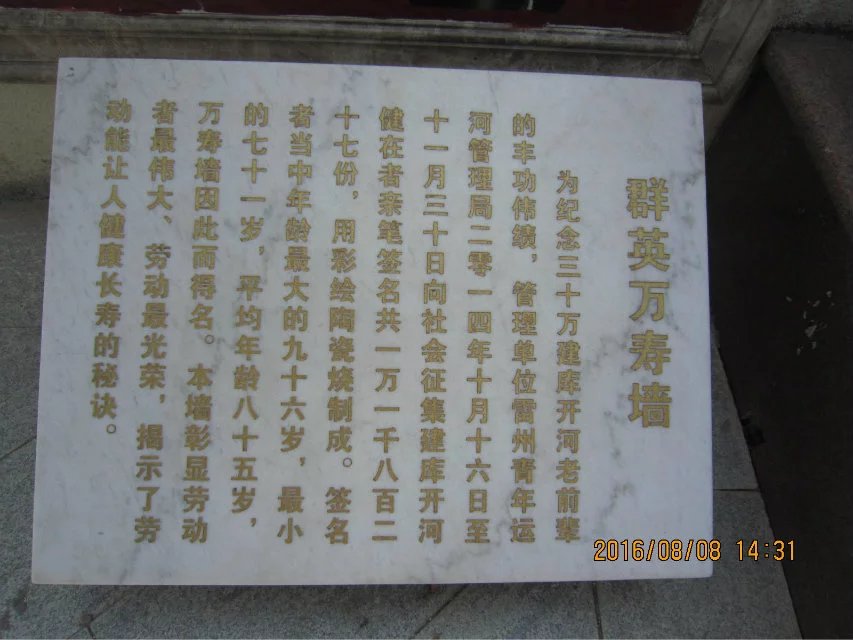 群英万寿墙
为纪念三十万建库开河老前辈
的丰功伟绩，管理单位雷州青年运
河管理局二零一四年十月十六日至
十一月三十日向社会征集建库开河
健在者亲笔签名共一万一千八百二
十七份，用彩绘陶瓷烧制成。签名
者当中年龄最大的九十六岁，最小
的七十一岁，平均年龄八十五岁，
万寿墙因此而得名。本墙彰显劳动
者最伟大、劳动最光荣，揭示了劳
动能让人健康长寿的秘诀。
2016/08/08 14:31